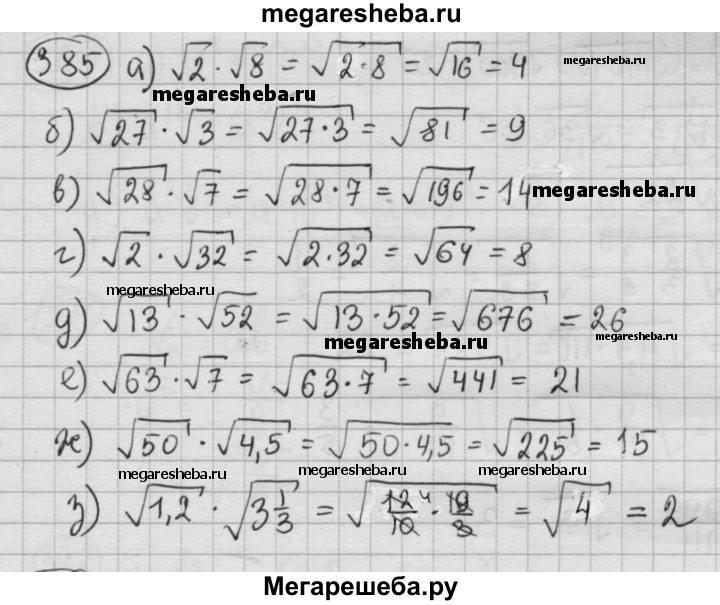 megaresheba.ru
385 а) √2 · √8 = √(2·8) = √16 = 4
megaresheba.ru
megaresheba.ru
б) √27 · √3 = √(27·3) = √81 = 9
в) √28 · √7 = √(28·7) = √196 = 14
megaresheba.ru
г) √2 · √32 = √(2·32) = √64 = 8
megaresheba.ru
д) √13 · √52 = √(13·52) = √676 = 26
megaresheba.ru
megaresheba.ru
е) √63 · √7 = √(63·7) = √441 = 21
ж) √50 · √4,5 = √(50·4,5) = √225 = 15
megaresheba.ru megaresheba.ru megaresheba.ru
з) √1,2 · √(3 1/3) = √(12/10 · 10/3) = √4 = 2
Мегарешеба.ру